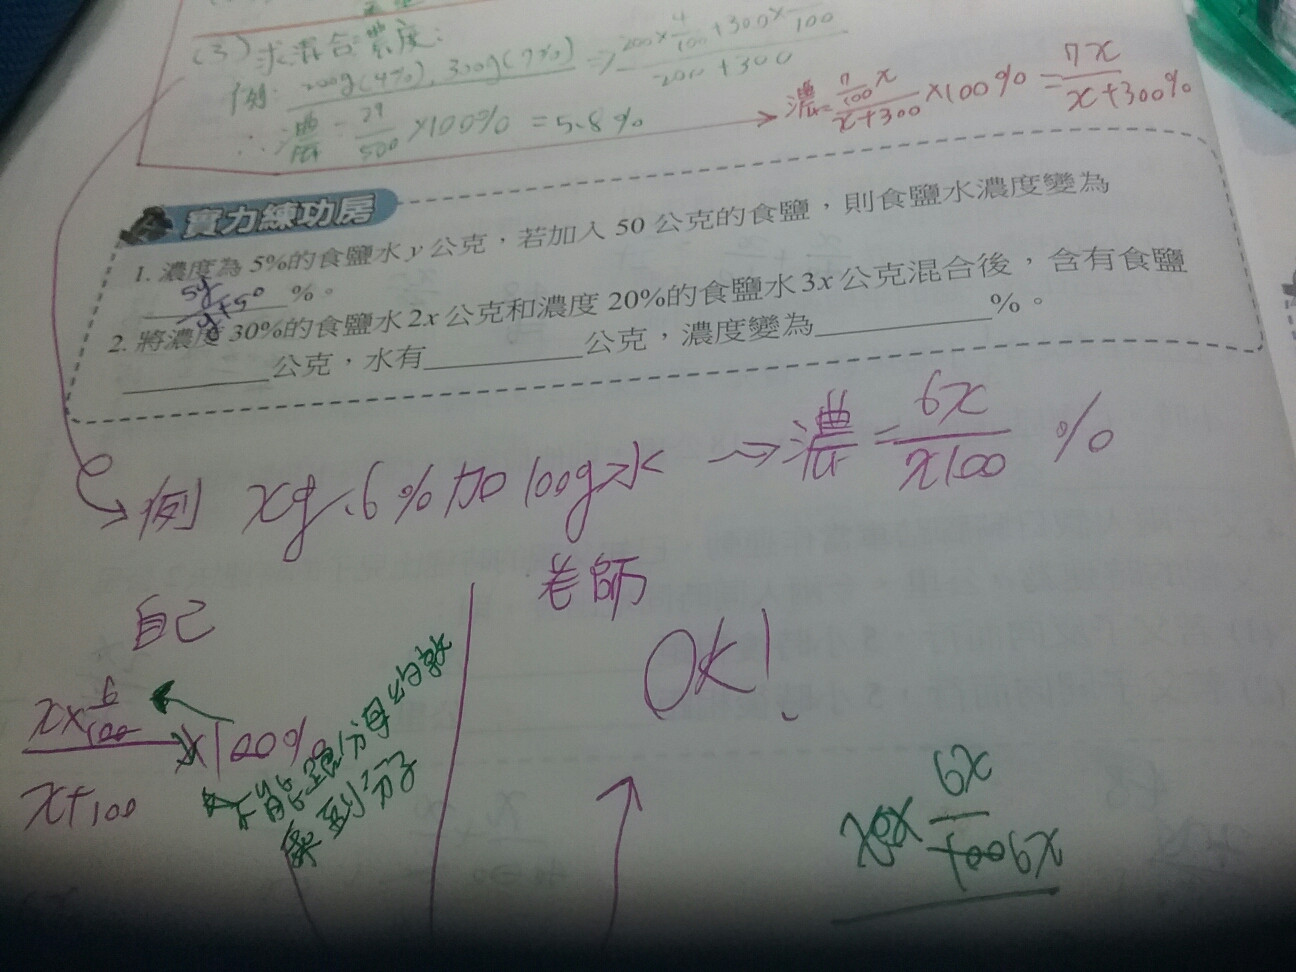 (3)求混合濃度:
例: 200g(4%), 300g(7%) => 200×4/100+300×/100 / 200+300
∴濃度=29/500×100%=5.8%
→濃度=7/100x/x+300×100%=7x/x+300%
實力練功房
1. 濃度為 5%的食鹽水 y 公克,若加入 50 公克的食鹽,則食鹽水濃度變為
5y/y+50 %。
2. 將濃度 30%的食鹽水 2x 公克和濃度 20%的食鹽水 3x 公克混合後,含有食鹽
公克,水有 公克,濃度變為 %。
例 xg、6%加100g水 → 濃度=6x/x100 %
自己
老師
OK!
x×6/100 / x+100 ×100%
不能跟分母約
乘到分子
6x
6x